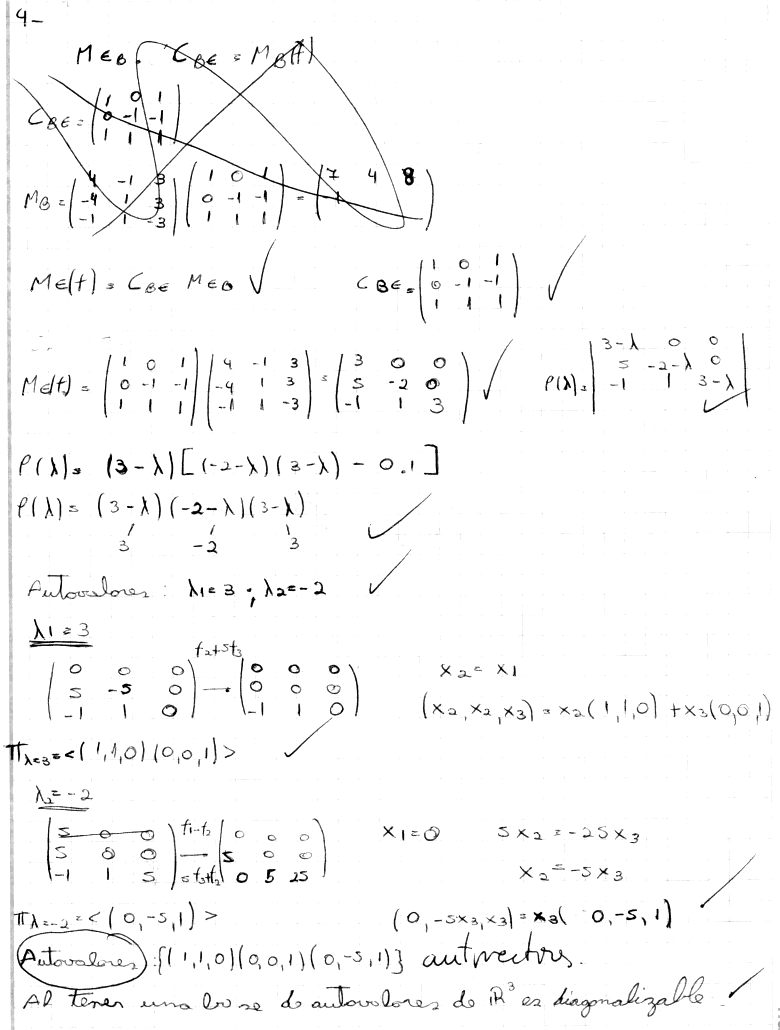 4-
M∈B. C_BE = M_B(f)
C_BE = (1 0 1 / 0 -1 -1 / 1 1 1)
M_B = (4 -1 3 / -4 1 3 / -1 1 -3) (1 0 1 / 0 -1 -1 / 1 1 1) = (7 4 8 / 1)
M∈(t) = C_BE M∈B ✓ C_BE = (1 0 1 / 0 -1 -1 / 1 1 1) ✓
M∈(t) = (1 0 1 / 0 -1 -1 / 1 1 1) (4 -1 3 / -4 1 3 / -1 1 -3) = (3 0 0 / 5 -2 0 / -1 1 3) ✓ P(λ) = |3-λ 0 0 / 5 -2-λ 0 / -1 1 3-λ| ✓
P(λ) = (3-λ)[(-2-λ)(3-λ) - 0.1]
P(λ) = (3-λ)(-2-λ)(3-λ) ✓
3 -2 3
Autovalores: λ1=3 ; λ2=-2 ✓
λ1=3
(0 0 0 / 5 -5 0 / -1 1 0) f2+5f3 → (0 0 0 / 0 0 0 / -1 1 0) x2 = x1
(x2, x2, x3) = x2(1,1,0) + x3(0,0,1)
Π λ=3 = <(1,1,0)(0,0,1)> ✓
λ2=-2
(5 0 0 / 5 0 0 / -1 1 5) f1-f2 → 5f3+f2 (0 0 0 / 5 0 0 / 0 5 25) x1=0 5x2 = -25x3
x2 = -5x3
Π λ=-2 = <(0,-5,1)> (0,-5x3,x3) = x3(0,-5,1) ✓
Autovalores: {(1,1,0)(0,0,1)(0,-5,1)} autovectores.
Al tener una base de autovalores de R³ es diagonalizable ✓